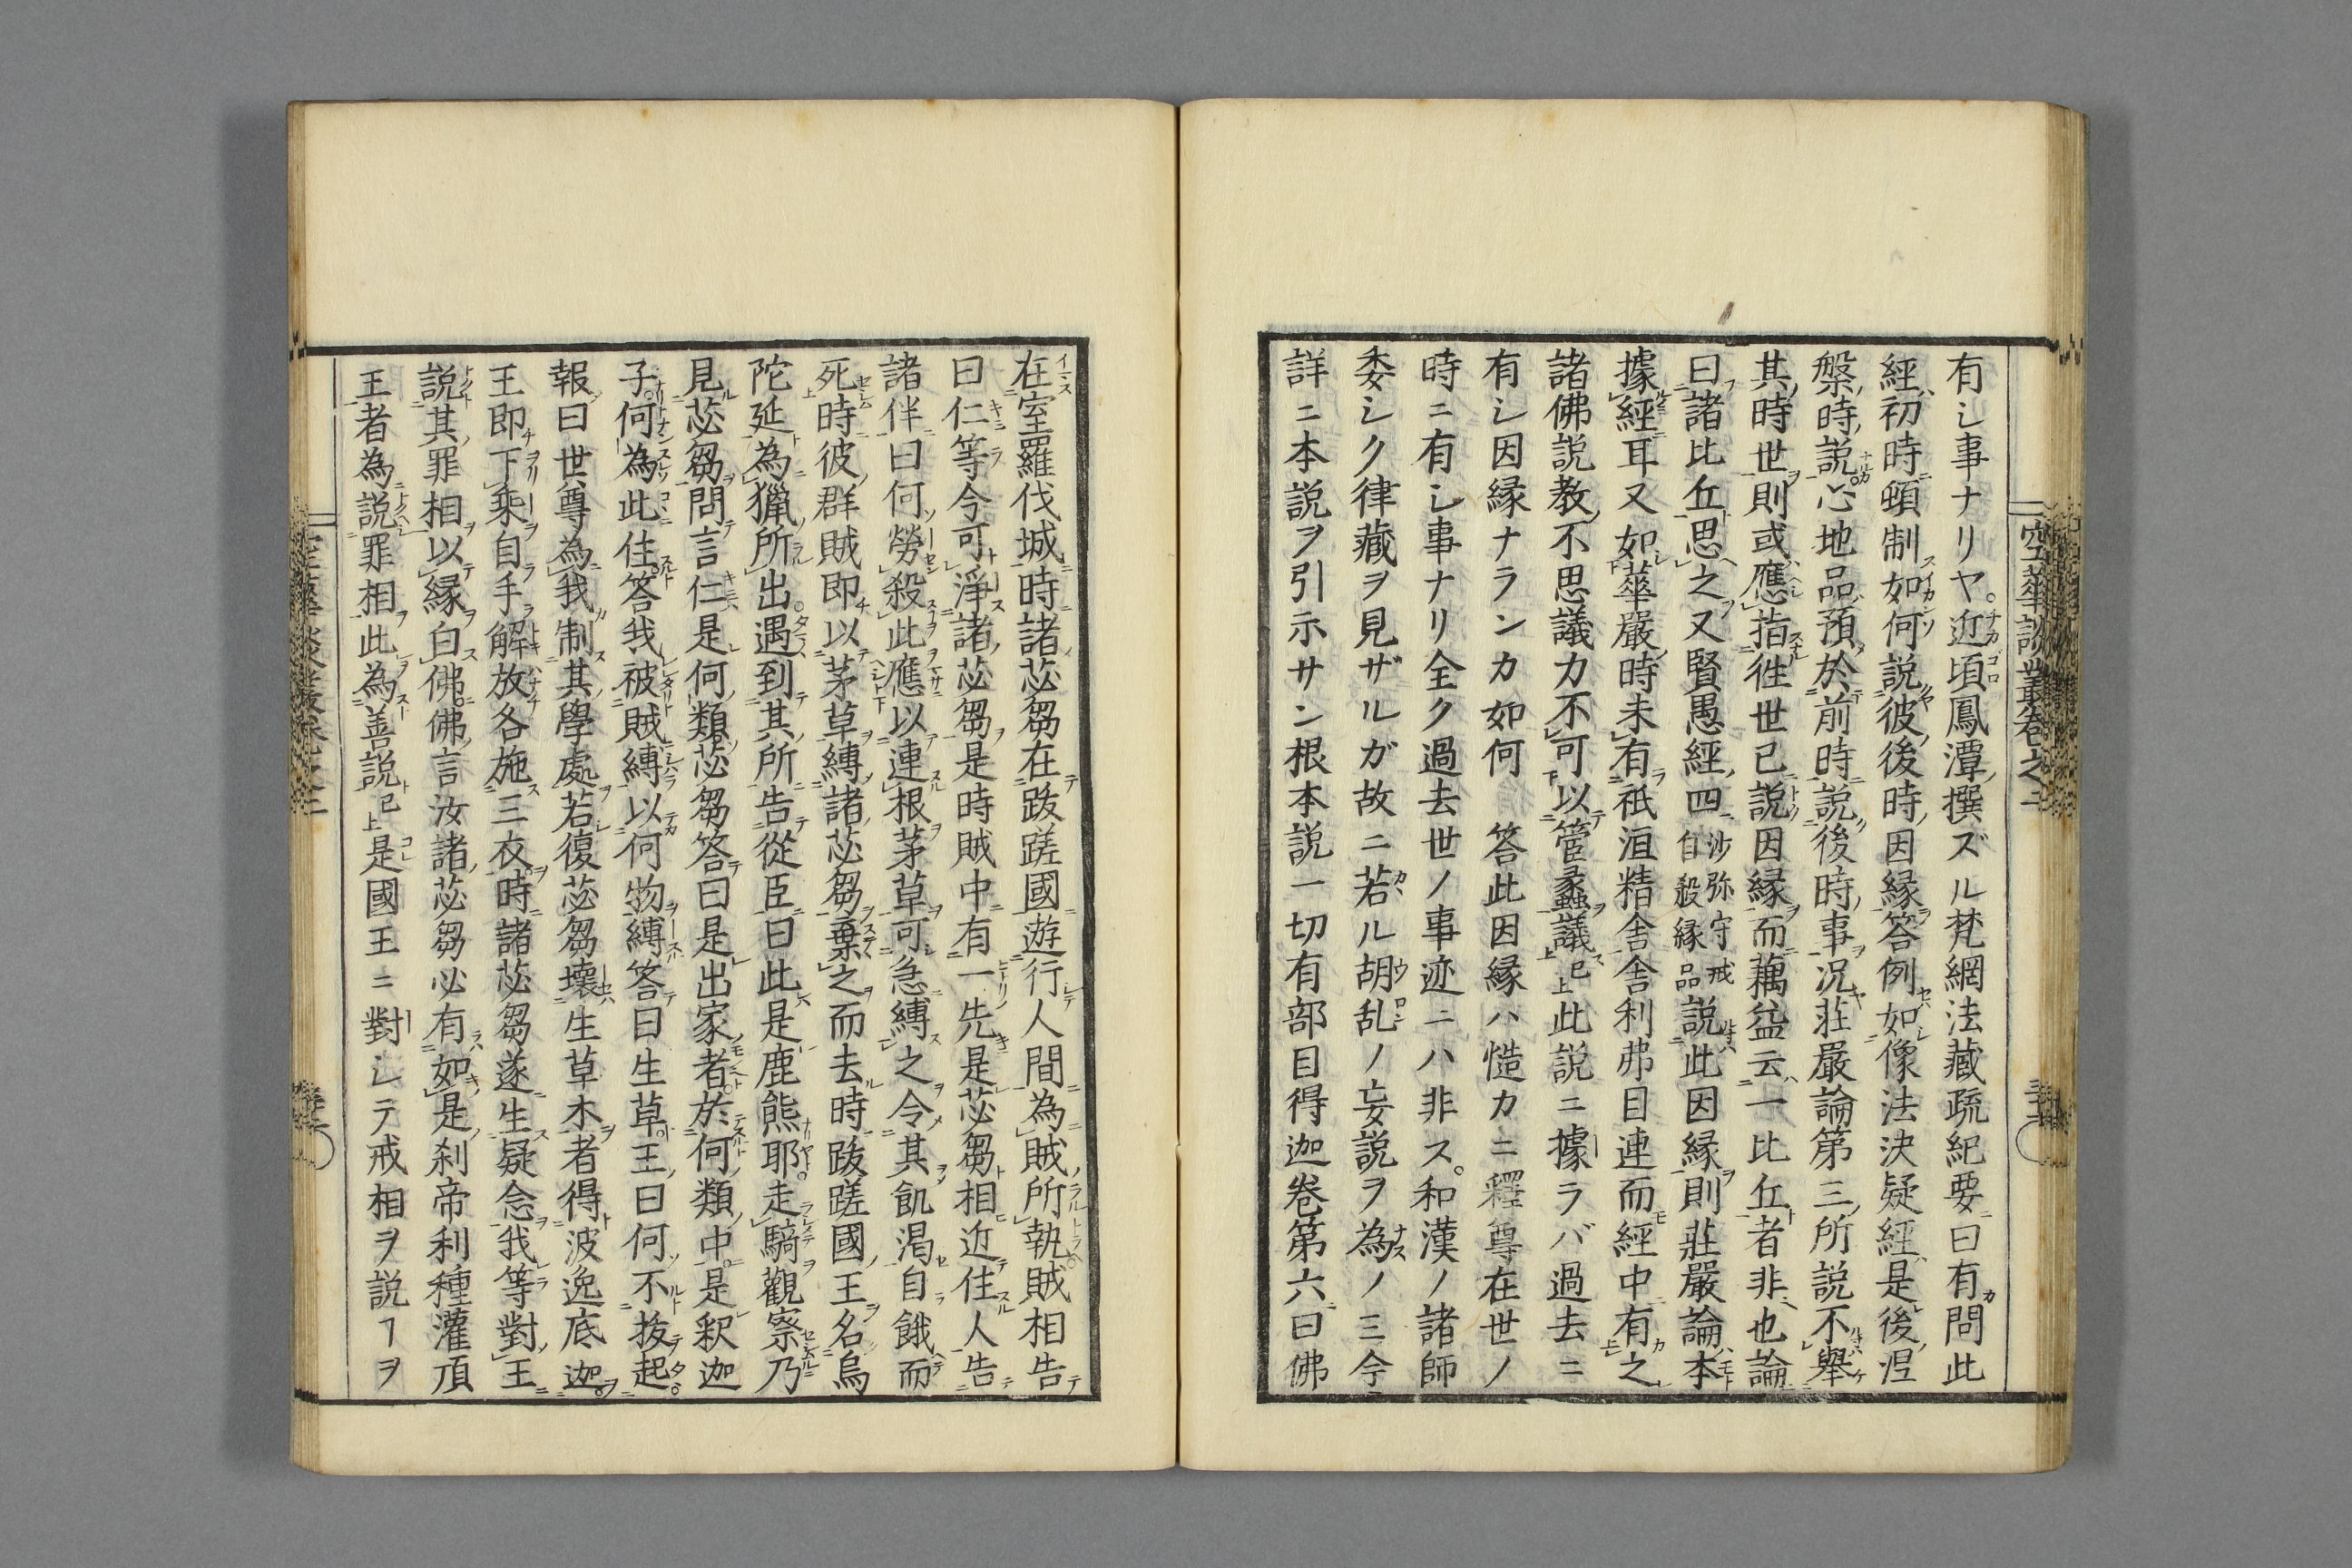 空華談叢卷之二
有シ事ナリヤ。近頃鳳潭撰ズル梵網法藏疏紀要曰有問此
經初時頓制如何説彼後時因縁答例如像法決疑經是後涅
槃時説心地品預於前時説後時事况莊嚴論第三所説不舉
其時世則或應指徃世已説因縁而藕益云一比丘者非也論
曰諸比丘思之又賢愚經四沙弥守戒自殺縁品説此因縁則莊嚴論本
據經耳又如華嚴時未有祇洹精舎舎利弗目連而經中有之
諸佛説教不思議力不可以管蠡議已上此説ニ據ラバ過去ニ
有シ因縁ナランカ如何 答此因縁ハ慥カニ釋尊在世ノ
時ニ有シ事ナリ全ク過去世ノ事迹ニハ非ス。和漢ノ諸師
委シク律藏ヲ見ザルガ故ニ若ル胡乱ノ妄説ヲ為ノミ今
詳ニ本説ヲ引示サン根本説一切有部目得迦卷第六曰佛
在室羅伐城時諸苾芻在跋蹉國遊行人間為賊所執賊相告
曰仁等今可淨諸苾芻是時賊中有一先是苾芻相近住人告
諸伴曰何勞殺此應以連根茅草可急縛之令其飢渇自餓而
死時彼群賊即以茅草縛諸苾芻棄之而去時跋蹉國王名烏
陀延為獵所出。遇到其所告從臣曰此是鹿熊耶。走騎觀察乃
見苾芻問言仁是何類苾芻答曰是出家者。於何類中。是釈迦
子。何為此住。答我被賊縛以何物縛答曰生草王曰何不抜起
報曰世尊為我制其學處若復苾芻壞生草木者得波逸底迦。
王即下乘自手解放各施三衣。時諸苾芻遂生疑念我等對王
説其罪相以縁白佛。佛言汝諸苾芻必有如是刹帝利種灌頂
王者為説罪相此為善説已上是國王ニ對シテ戒相ヲ説ヿヲ